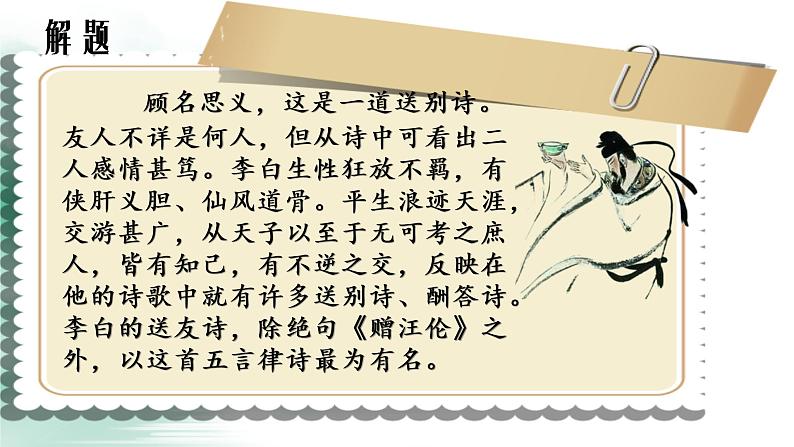 解 题
顾名思义，这是一道送别诗。
友人不详是何人，但从诗中可看出二
人感情甚笃。李白生性狂放不羁，有
侠肝义胆、仙风道骨。平生浪迹天涯，
交游甚广，从天子以至于无可考之庶
人，皆有知己，有不逆之交，反映在
他的诗歌中就有许多送别诗、酬答诗。
李白的送友诗，除绝句《赠汪伦》之
外，以这首五言律诗最为有名。